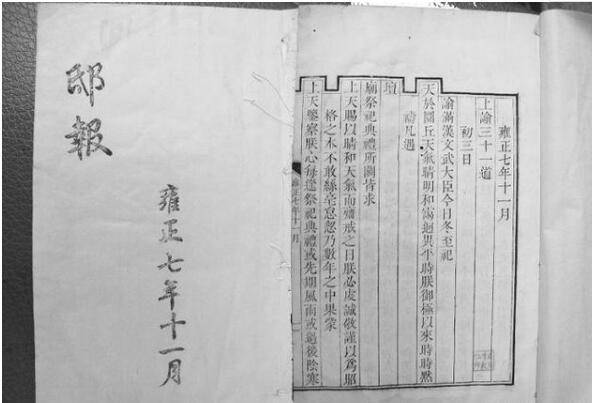 邸報
雍正七年十一月
雍正七年十一月
上諭三十一道
初三日
諭滿漢文武大臣今日冬至祀
天於圜丘天氣晴明和煦迥異平時朕御極以來時時黙
禱凡遇
壇
廟祭祀典禮所關皆求
上天賜以晴和天氣而齋戒之日朕必虔誠敬謹以爲昭
格之本不敢絲毫怠忽乃數年之中果蒙
上天鑒察朕心每逢祭祀典禮或先期風雨或過後陰寒
正七年十一月